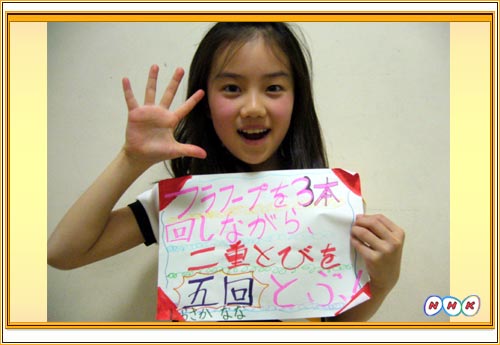 フラフープを3本
回しながら、
二重とびを
五回とぶ!
さか なな
NHK